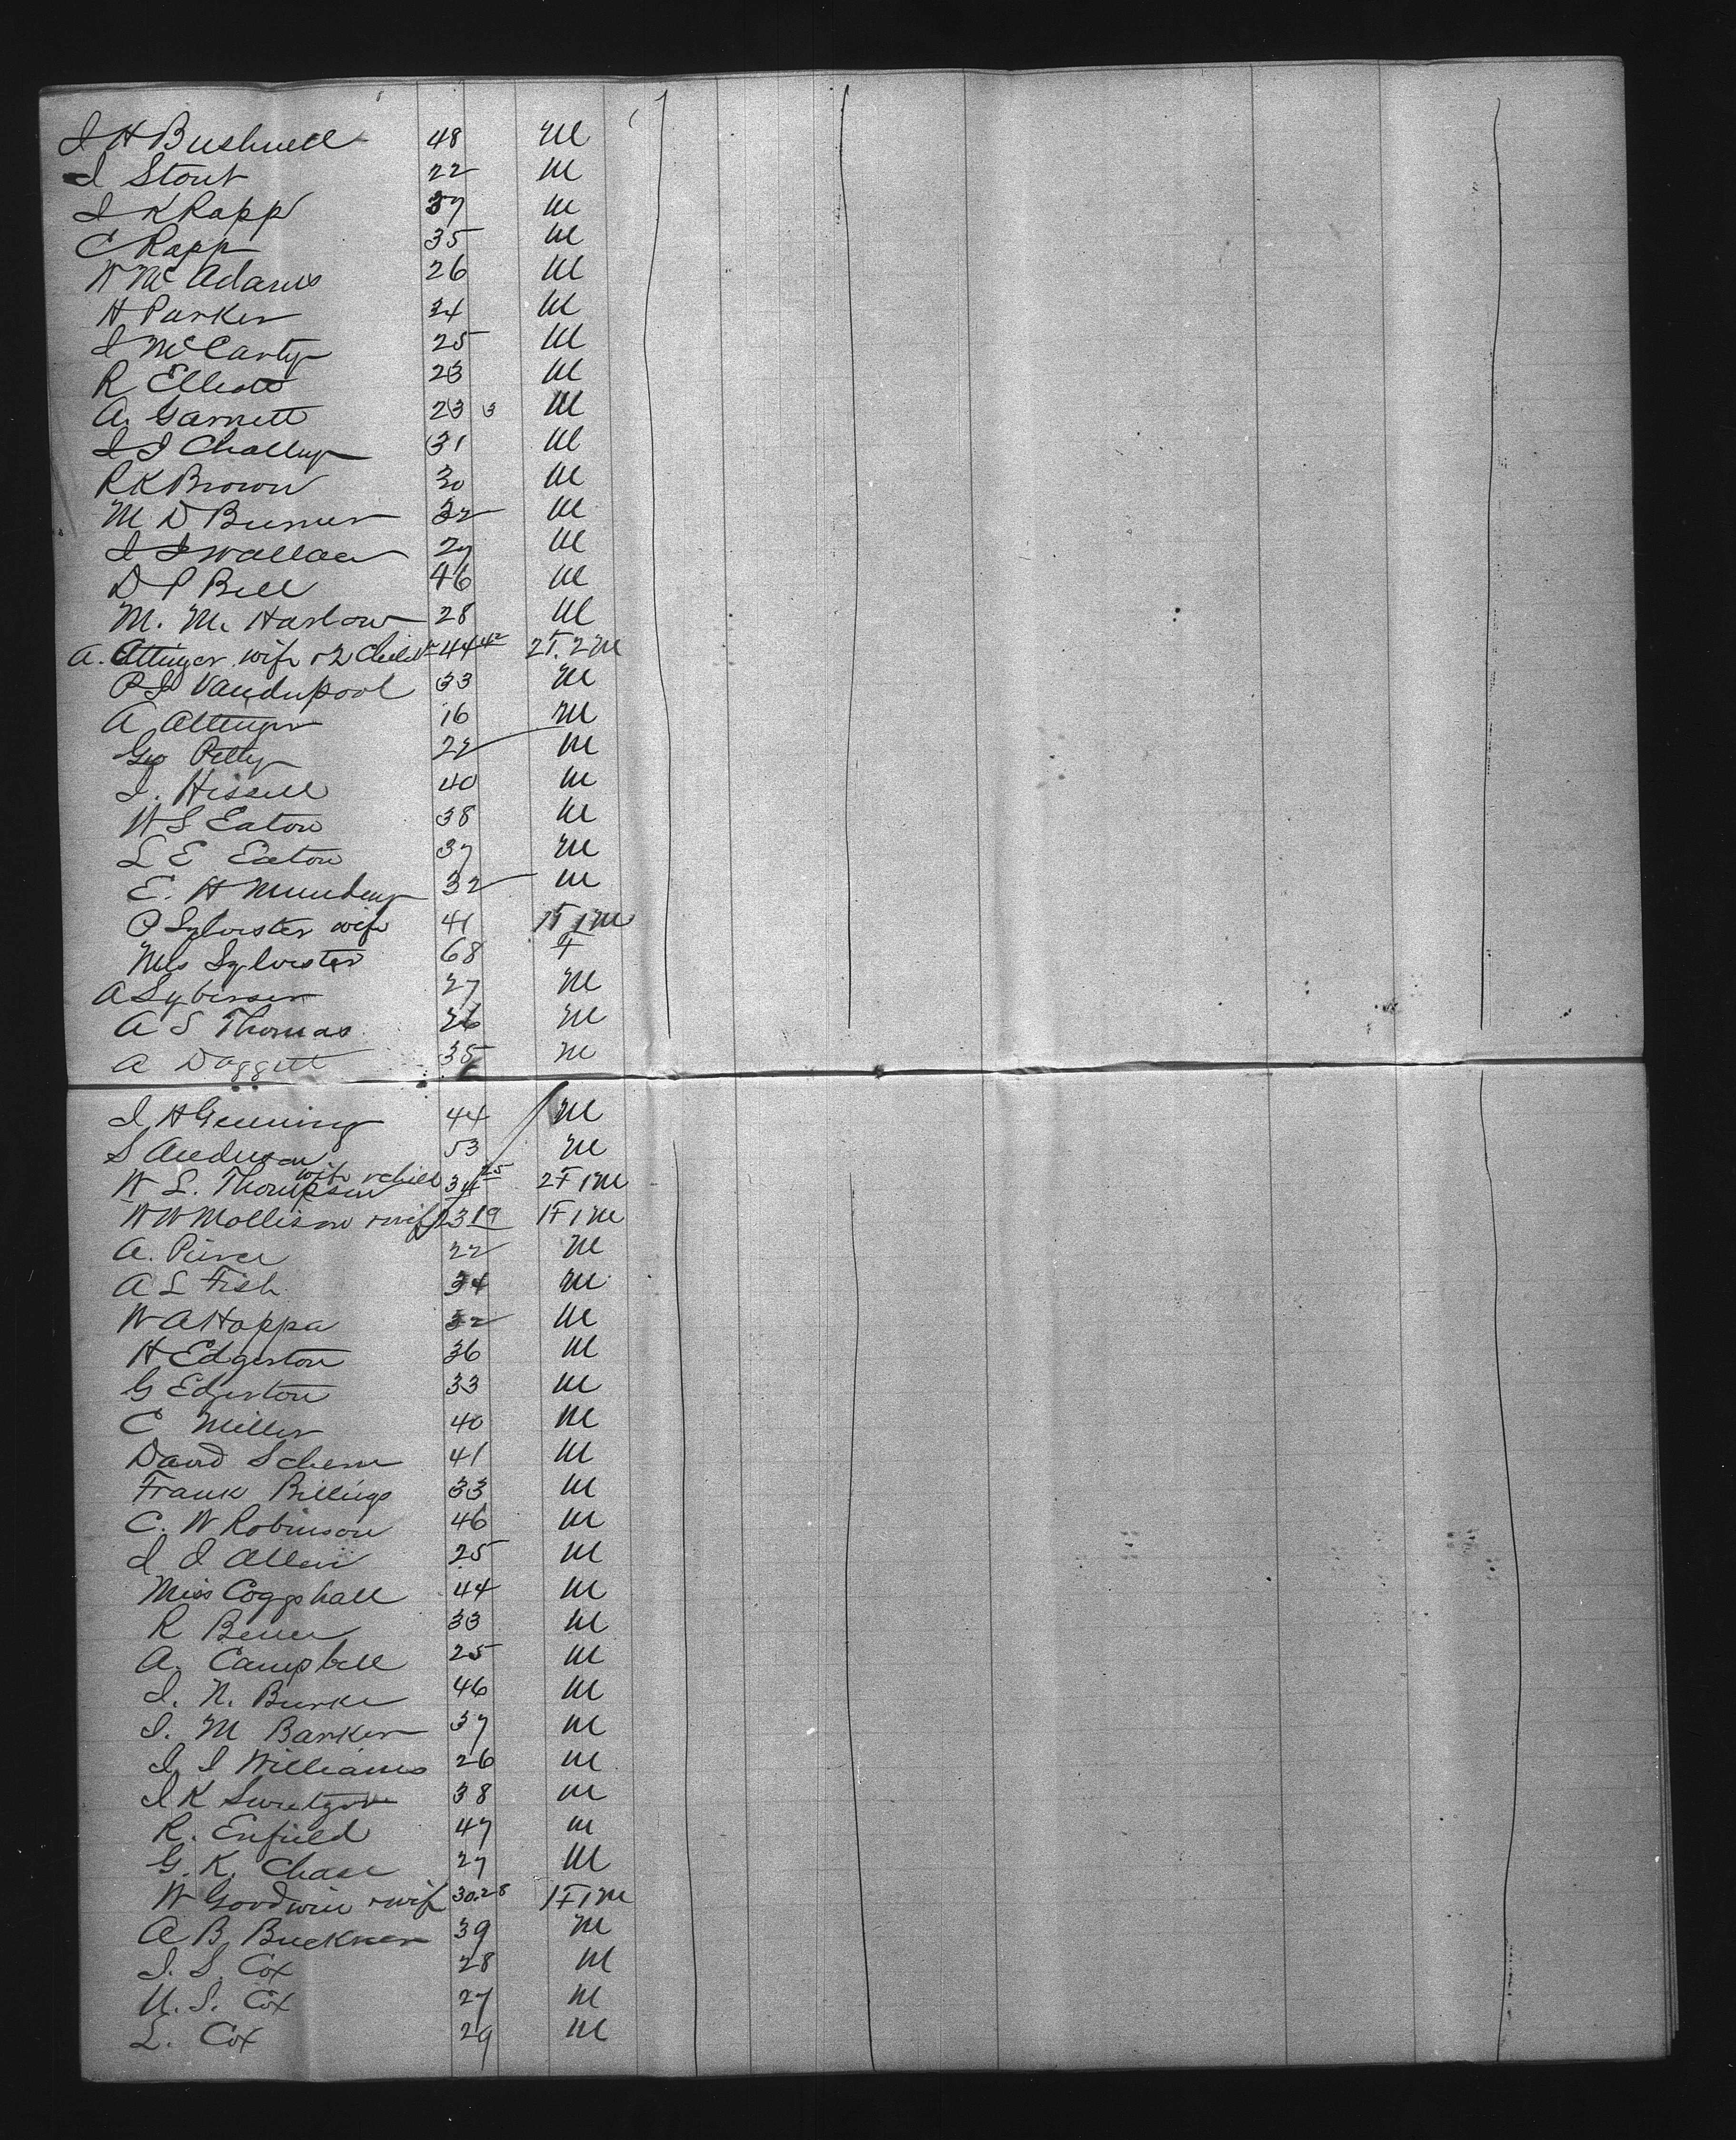 J H Bushnell 48 M
J Stout 22 M
J K Rapp 37 M
C Rapp 35 M
W McAdams 26 M
H Parker 24 M
J McCarty 25 M
R Elliott 23 M
A. Garnett 23 3 M
J J Challup 31 M
R K Brown 30 M
M D 32 M
J J Wallace 27 M
D P Bell 46 M
M. M. Harlow 28 M
A. Attinger wife & 2 child 44 42 2F. 2M
P J Vanderpool 33 M
A Attinger 16 M
Geo Petty 22 M
J. Hissell 40 M
W S Eaton 38 M
L E Eaton 37 M
E. H 32 M
P Sylvester wife 41 1F 1M
Mrs Sylvester 68 F
A 27 M
A S Thomas 26 M
A Daggett 35 M
J H Genning 44 M
S Anderson 53 M
W L. Thompson wife & child 34 25 2F 1M
W W Mollison & wife 23 19 1F 1M
A. Pierce 22 M
A L Fish 34 M
W A Hoppa 32 M
H Edgerton 36 M
G Edgerton 33 M
C Miller 40 M
David 41 M
Frank Billings 33 M
C. W Robinson 46 M
J J Allen 25 M
Miss Coggshall 44 M
R 33 M
A. Campbell 25 M
J. N. Burke 46 M
J. M Barker 37 M
J. J Williams 26 M
J K 38 M
R. Enfield 47 M
G. K. Chase 27 M
W Goodwin & wife 30.28 1F 1M
A B. Buckner 39 M
J. S. Cox 28 M
U. S. Cox 27 M
L. Cox 29 M